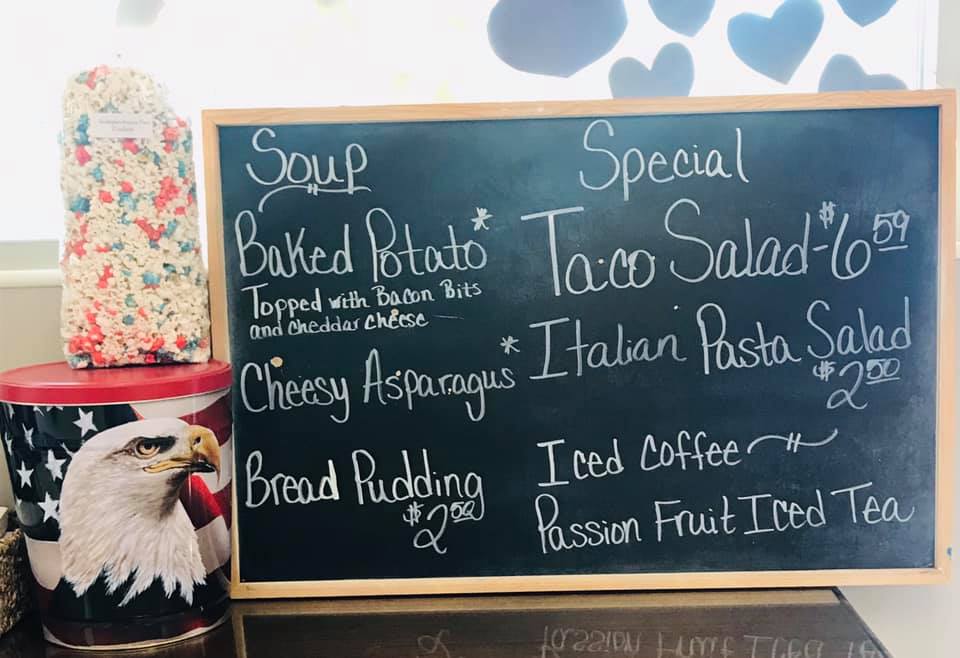 Soup
Baked Potato*
Topped with Bacon Bits
and cheddar cheese
Cheesy Asparagus*
Bread Pudding
$2.50
Special
Taco Salad-$6.59
Italian Pasta Salad
$2.50
Iced Coffee
Passion Fruit Iced Tea